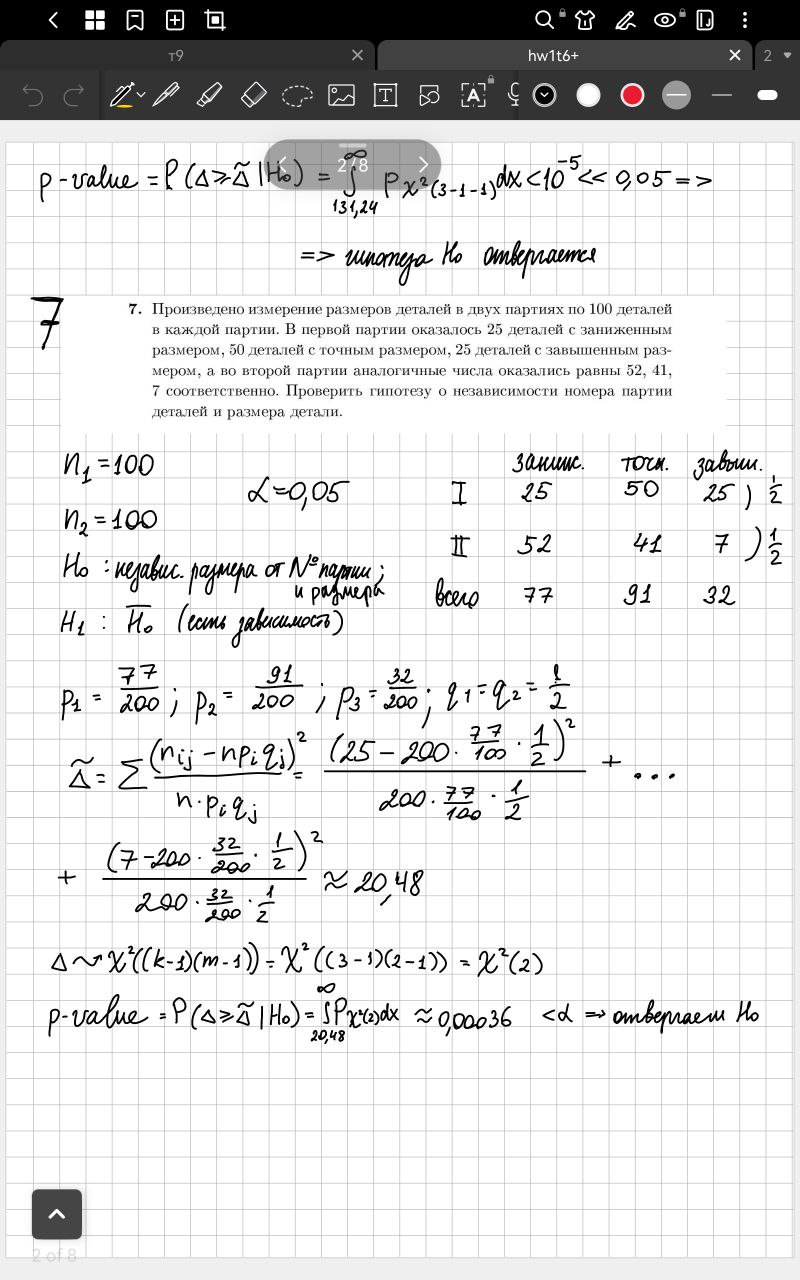 т9
hw1t6+
2
p-value = P(Δ⩾Δ̃ | H₀) = ∫_{131,24}^{∞} p_{χ²(3-1-1)}dx < 10⁻⁵ << 0,05 =>
2/8
=> гипотеза H₀ отвергается
7
7. Произведено измерение размеров деталей в двух партиях по 100 деталей
в каждой партии. В первой партии оказалось 25 деталей с заниженным
размером, 50 деталей с точным размером, 25 деталей с завышенным раз-
мером, а во второй партии аналогичные числа оказались равны 52, 41,
7 соответственно. Проверить гипотезу о независимости номера партии
деталей и размера детали.
заниж. точн. завыш.
n₁ = 100
α = 0,05
I 25 50 25 ) 1/2
n₂ = 100
II 52 41 7 ) 1/2
H₀ : независ. размера от № партии;
и размера
всего 77 91 32
H₁ : H̅₀ (есть зависимость)
p₁ = 77/200 ; p₂ = 91/200 ; p₃ = 32/200 ; q₁ = q₂ = 1/2
Δ̃ = Σ (n_{ij} - np_iq_j)²/(n·p_iq_j) = (25 - 200 · 77/100 · 1/2)²/(200 · 77/100 · 1/2) + ...
+ (7 - 200 · 32/200 · 1/2)²/(200 · 32/200 · 1/2) ≈ 20,48
Δ ⇝ χ²((k-1)(m-1)) = χ²((3-1)(2-1)) = χ²(2)
p-value = P(Δ⩾Δ̃ | H₀) = ∫_{20,48}^{∞} p_{χ²(2)}dx ≈ 0,00036 < α => отвергаем H₀
2 of 8